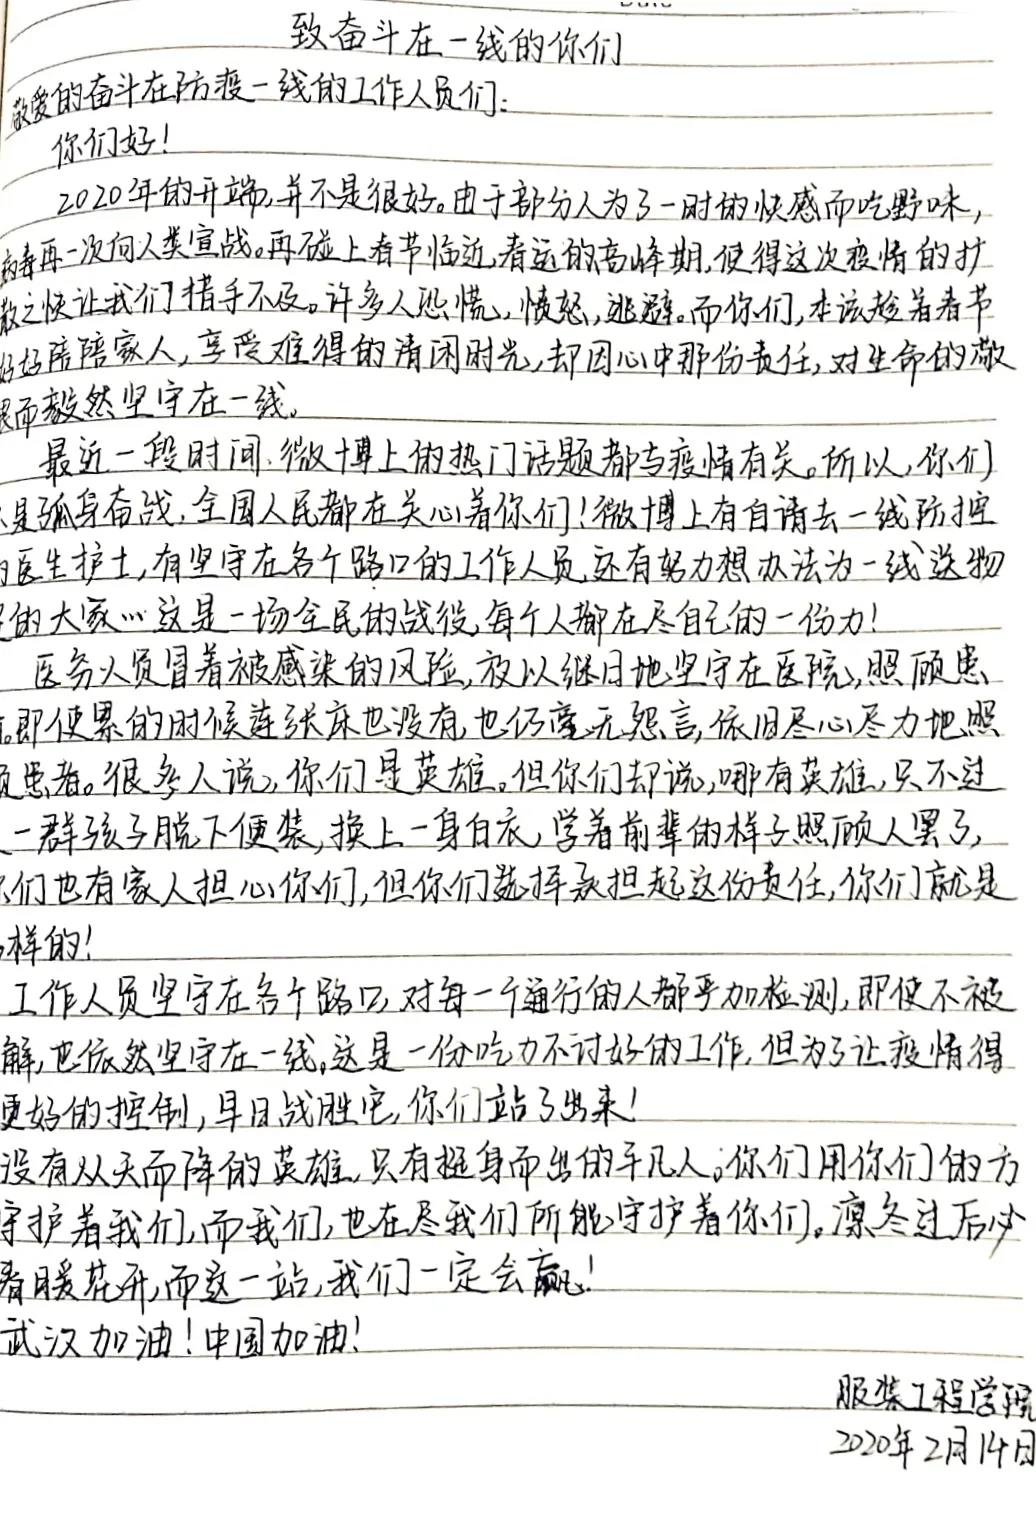 致奋斗在一线的你们
敬爱的奋斗在防疫一线的工作人员们:
你们好!
2020年的开端,并不是很好。由于部分人为了一时的快感而吃野味,
病毒再一次向人类宣战。再碰上春节临近,春运的高峰期,使得这次疫情的扩
散之快让我们措手不及。许多人恐慌,愤怒,逃避。而你们,本该趁着春节
好好陪陪家人,享受难得的清闲时光,却因心中那份责任,对生命的敬
畏而毅然坚守在一线。
最近一段时间,微博上的热门话题都与疫情有关。所以,你们
是孤身奋战,全国人民都在关心着你们!微博上有自请去一线防控
的医生护士,有坚守在各个路口的工作人员,还有努力想办法为一线送物
的大家…这是一场全民的战役,每个人都在尽自己的一份力!
医务人员冒着被感染的风险,夜以继日地坚守在医院,照顾患
。即使累的时候连张床也没有,也仍毫无怨言,依旧尽心尽力地照
顾患者。很多人说,你们是英雄。但你们却说,哪有英雄,只不过
一群孩子脱下便装,换上一身白衣,学着前辈的样子照顾人罢了,
你们也有家人担心你们,但你们选择承担起这份责任,你们就是
样的!
工作人员坚守在各个路口,对每一个通行的人都严加检测,即使不被
解,也依然坚守在一线,这是一份吃力不讨好的工作,但为了让疫情得
更好的控制,早日战胜它,你们站了出来!
没有从天而降的英雄,只有挺身而出的平凡人;你们用你们的方
守护着我们,而我们,也在尽我们所能守护着你们。凛冬过后必
春暖花开,而这一站,我们一定会赢!
武汉加油!中国加油!
服装工程学院
2020年2月14日